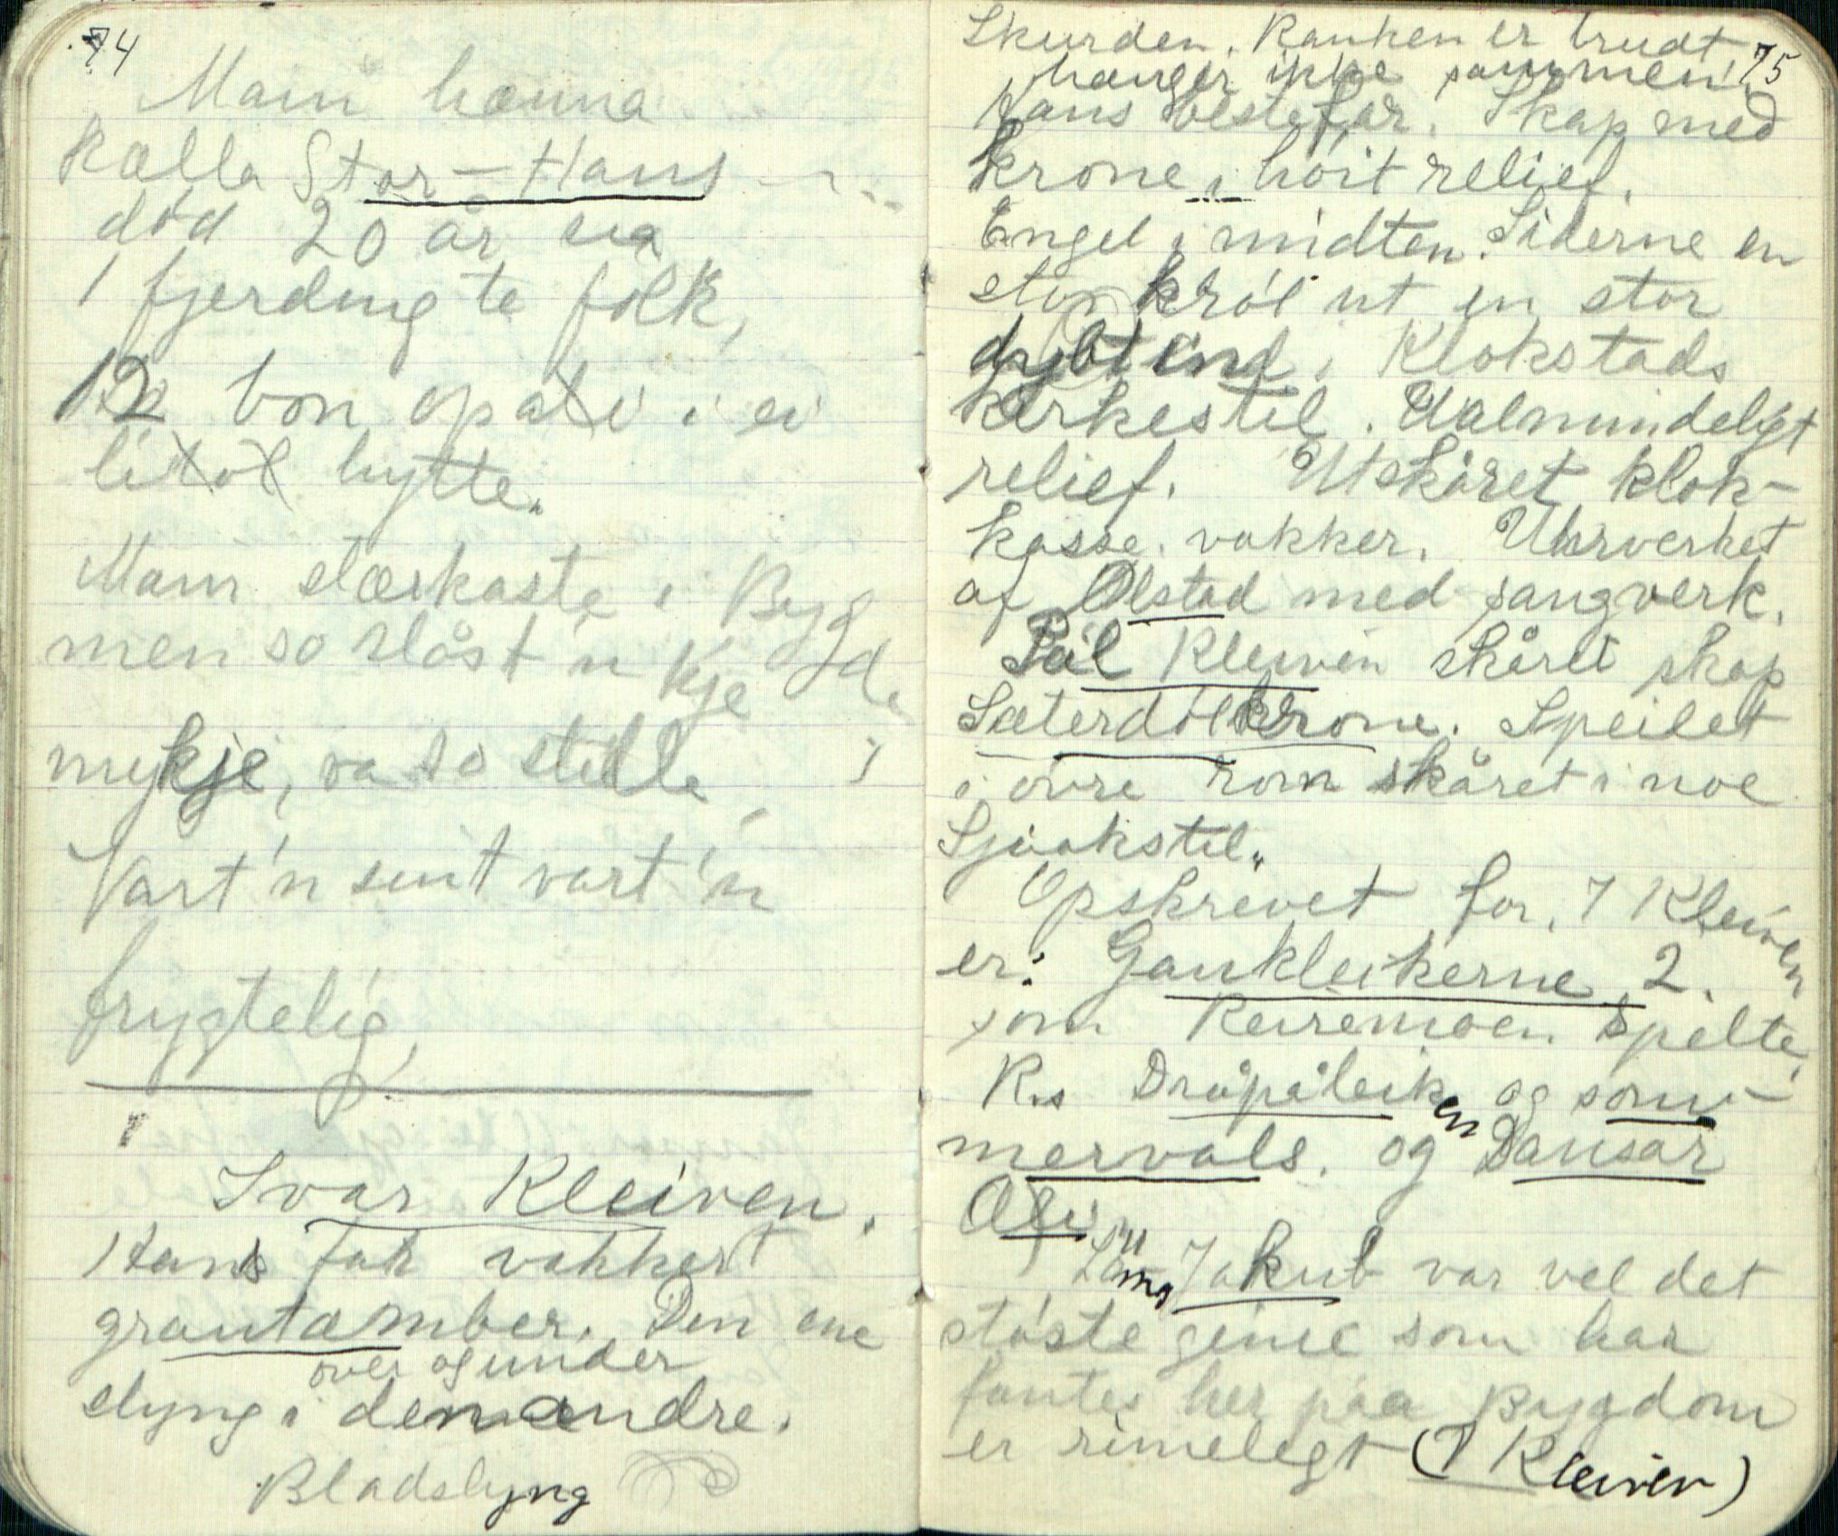 74
Mann hænna
Kælla Stor-Hans
død 20 år sia
1 fjerding te folk,
12 bon opali i ei
liti hytte.
Mann stærkaste i Bygde
men so slåst'n kje
mykje, va so stille, i
Vart'n sint vart'n
frygtelig,
Ivar Kleiven.
Hans fah vakkert
grautamber. Den ene
over og under
slyng i den andre.
Bladslyng
75
Skurden. Ranken er brudt
hænger ikke sammen!
Hans bestefar. Skap med
krone i høit relief.
Engel i midten. Siderne en
stor krøl ut en stor
dypt ind i Klokstads
kirkestil. Ualmindeligt
relief. Utskåret klok-
kasse. vakker. Uhrverket
af Ølstad med sangverk.
Pål Kleiven skåret skap
Sæterdølkrone. Speilet
i øvre rom skåret i noe
Sjåakstil.
Opskrevet for I Kleiven
er: Gaukleikerne 2.
som Reiremoen spelte,
R.s Dråpåleiken og som-
mervals. og Dansar
Ola
Lång Jakub var vel det
støste geni som har
fantes her paa Bygdom
er rimelegt (I Kleiven)